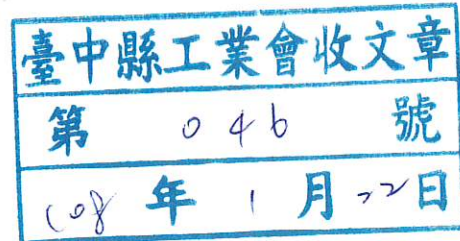 臺中縣工業會收文章
第 046 號
108 年 1 月 22 日